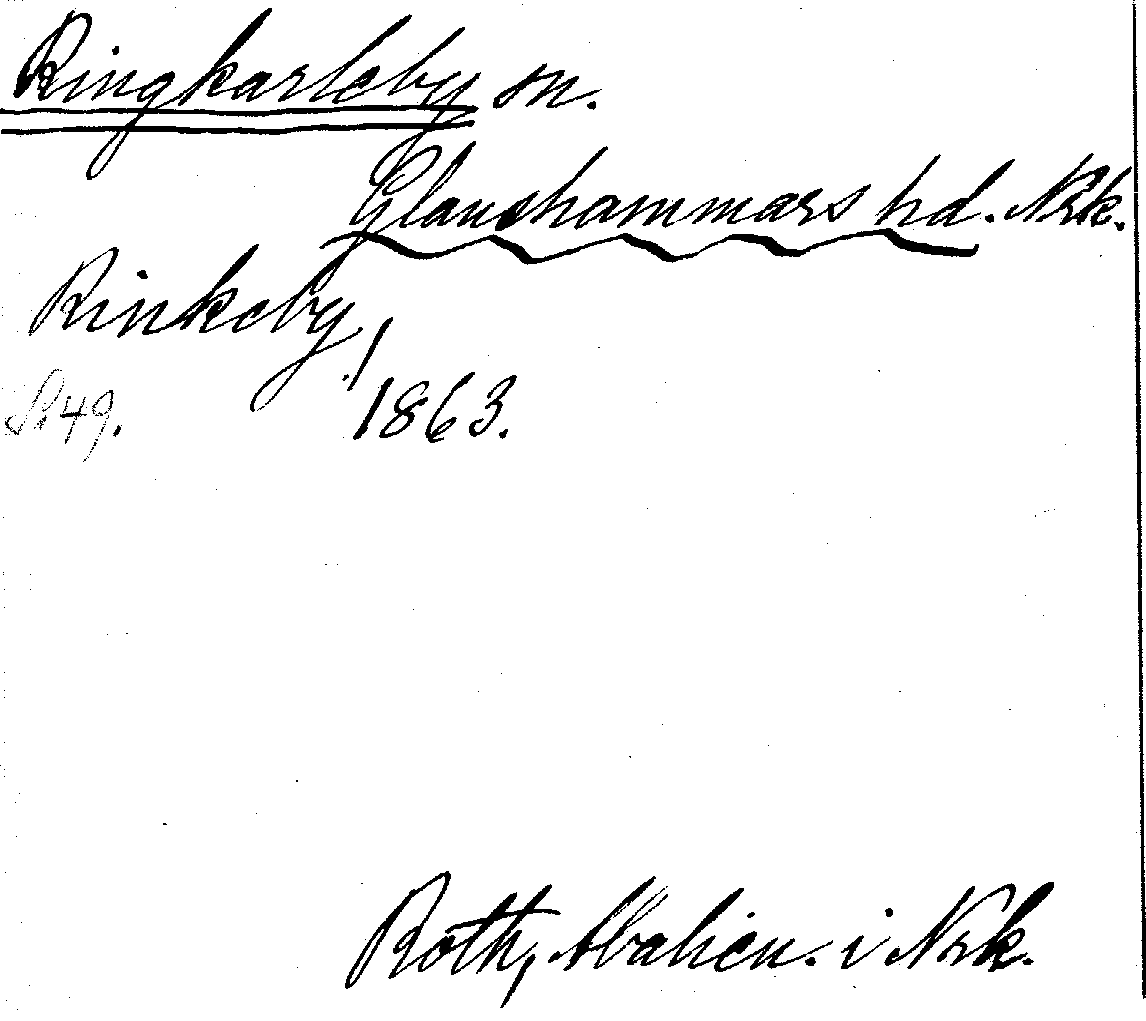 Ringkarleby sn.
Glanshammars hd. Nrk.
Rinkeby
S. 49. 1863.
Roth, i Nrk.